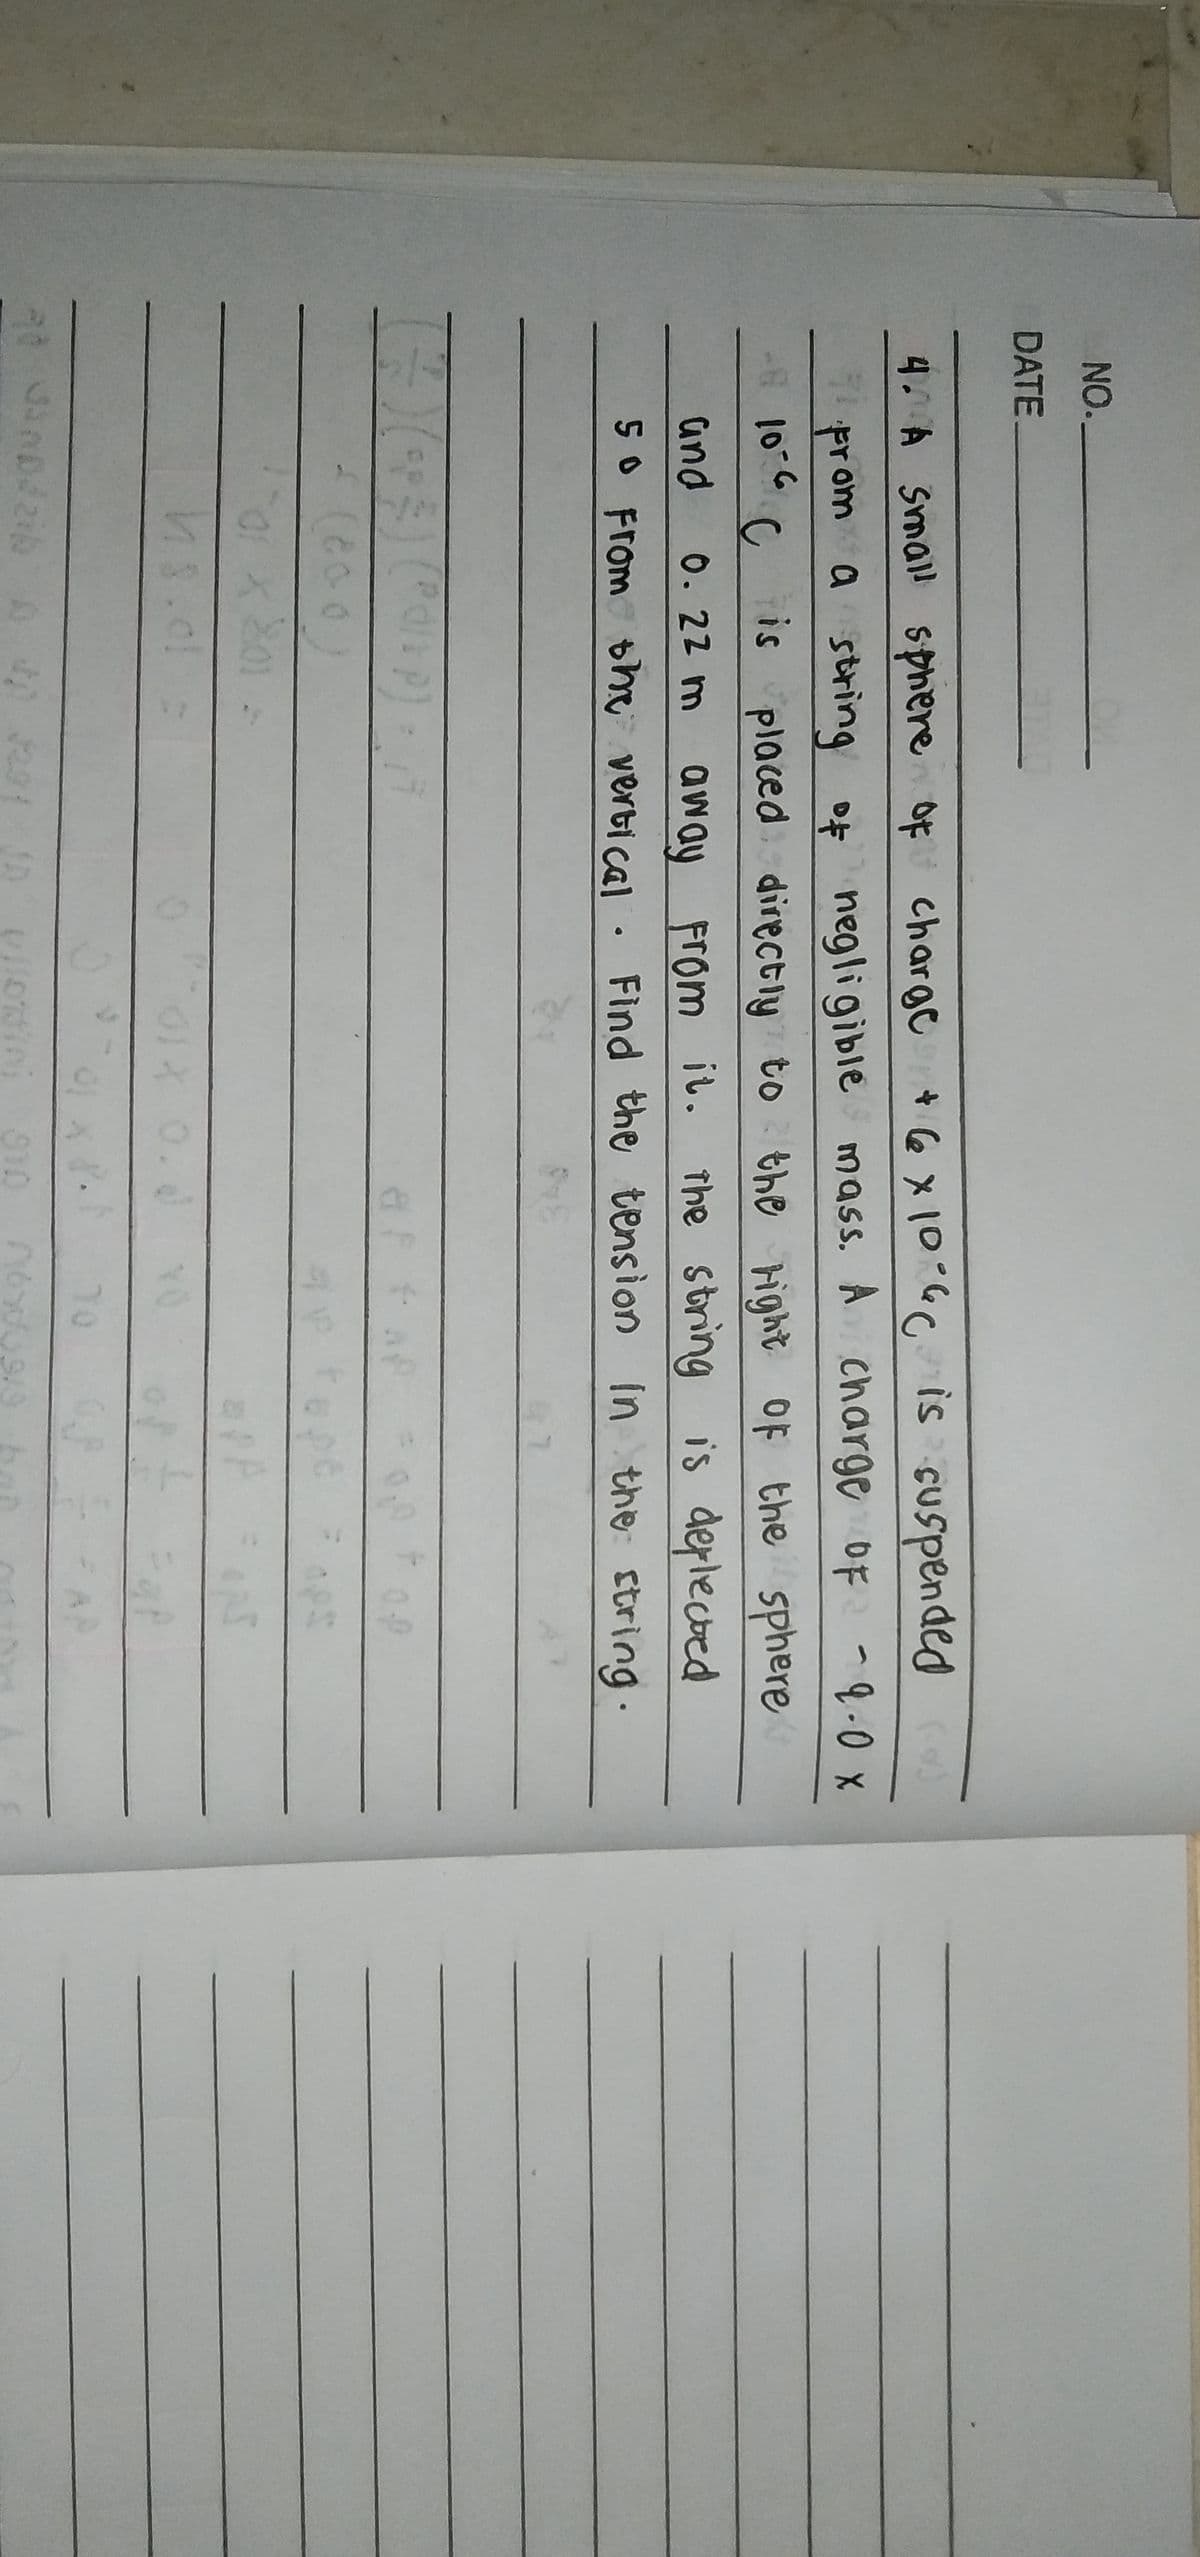 NO.
DATE
4. A small sphere of charge +6 x 10-6 C is suspended
from a string of negligible mass. A charge of -9.0 x
10-6 C is placed directly to the right of the sphere
and 0.22 m away from it. The string is deflected
50 from the vertical. Find the tension in the string.